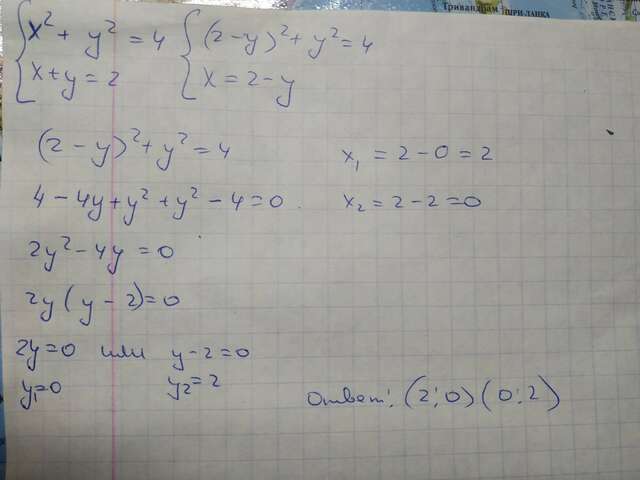 Тривандрам ШРИ-ЛАНКА
{ x² + y² = 4 { (2-y)² + y² = 4
{ x + y = 2 { x = 2 - y
(2 - y)² + y² = 4
x₁ = 2 - 0 = 2
4 - 4y + y² + y² - 4 = 0
x₂ = 2 - 2 = 0
2y² - 4y = 0
2y (y - 2) = 0
2y = 0 или y - 2 = 0
y₁ = 0 y₂ = 2
Ответ: (2;0) (0;2)